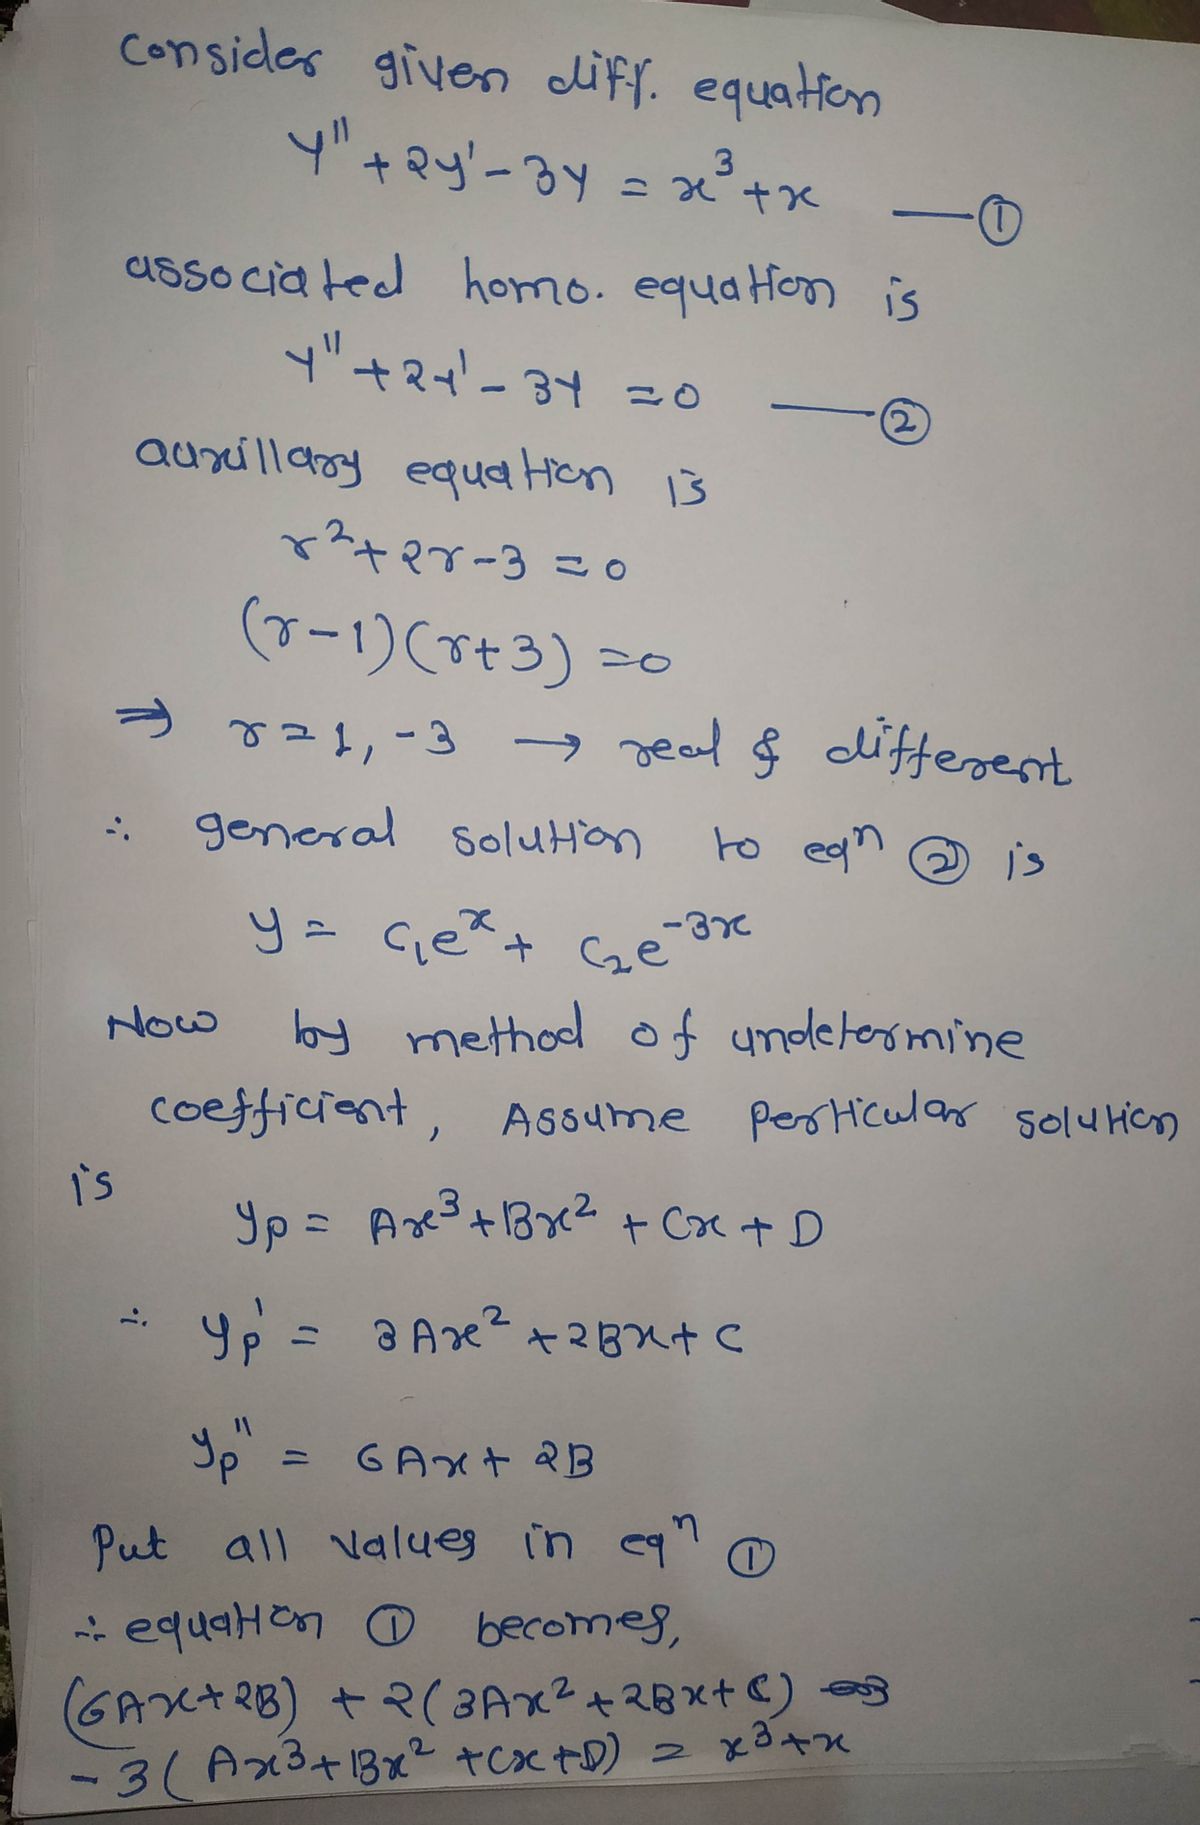 Consider given diff. equation
y" + 2y' - 3y = x³ + x —①
associated homo. equation is
y" + 2y' - 3y = 0 —②
auxillary equation is
r² + 2r - 3 = 0
(r-1)(r+3) = 0
⇒ r = 1, -3 → real & different
∴ general solution to eqⁿ ② is
y = c₁eˣ + c₂e⁻³ˣ
Now by method of undetermine
coefficient, Assume perticular solution
is
yp = Ax³ + Bx² + Cx + D
∴ yp' = 3Ax² + 2Bx + C
yp" = 6Ax + 2B
Put all values in eqⁿ ①
∴ equation ① becomes,
(6Ax + 2B) + 2(3Ax² + 2Bx + C)
- 3(Ax³ + Bx² + Cx + D) = x³ + x